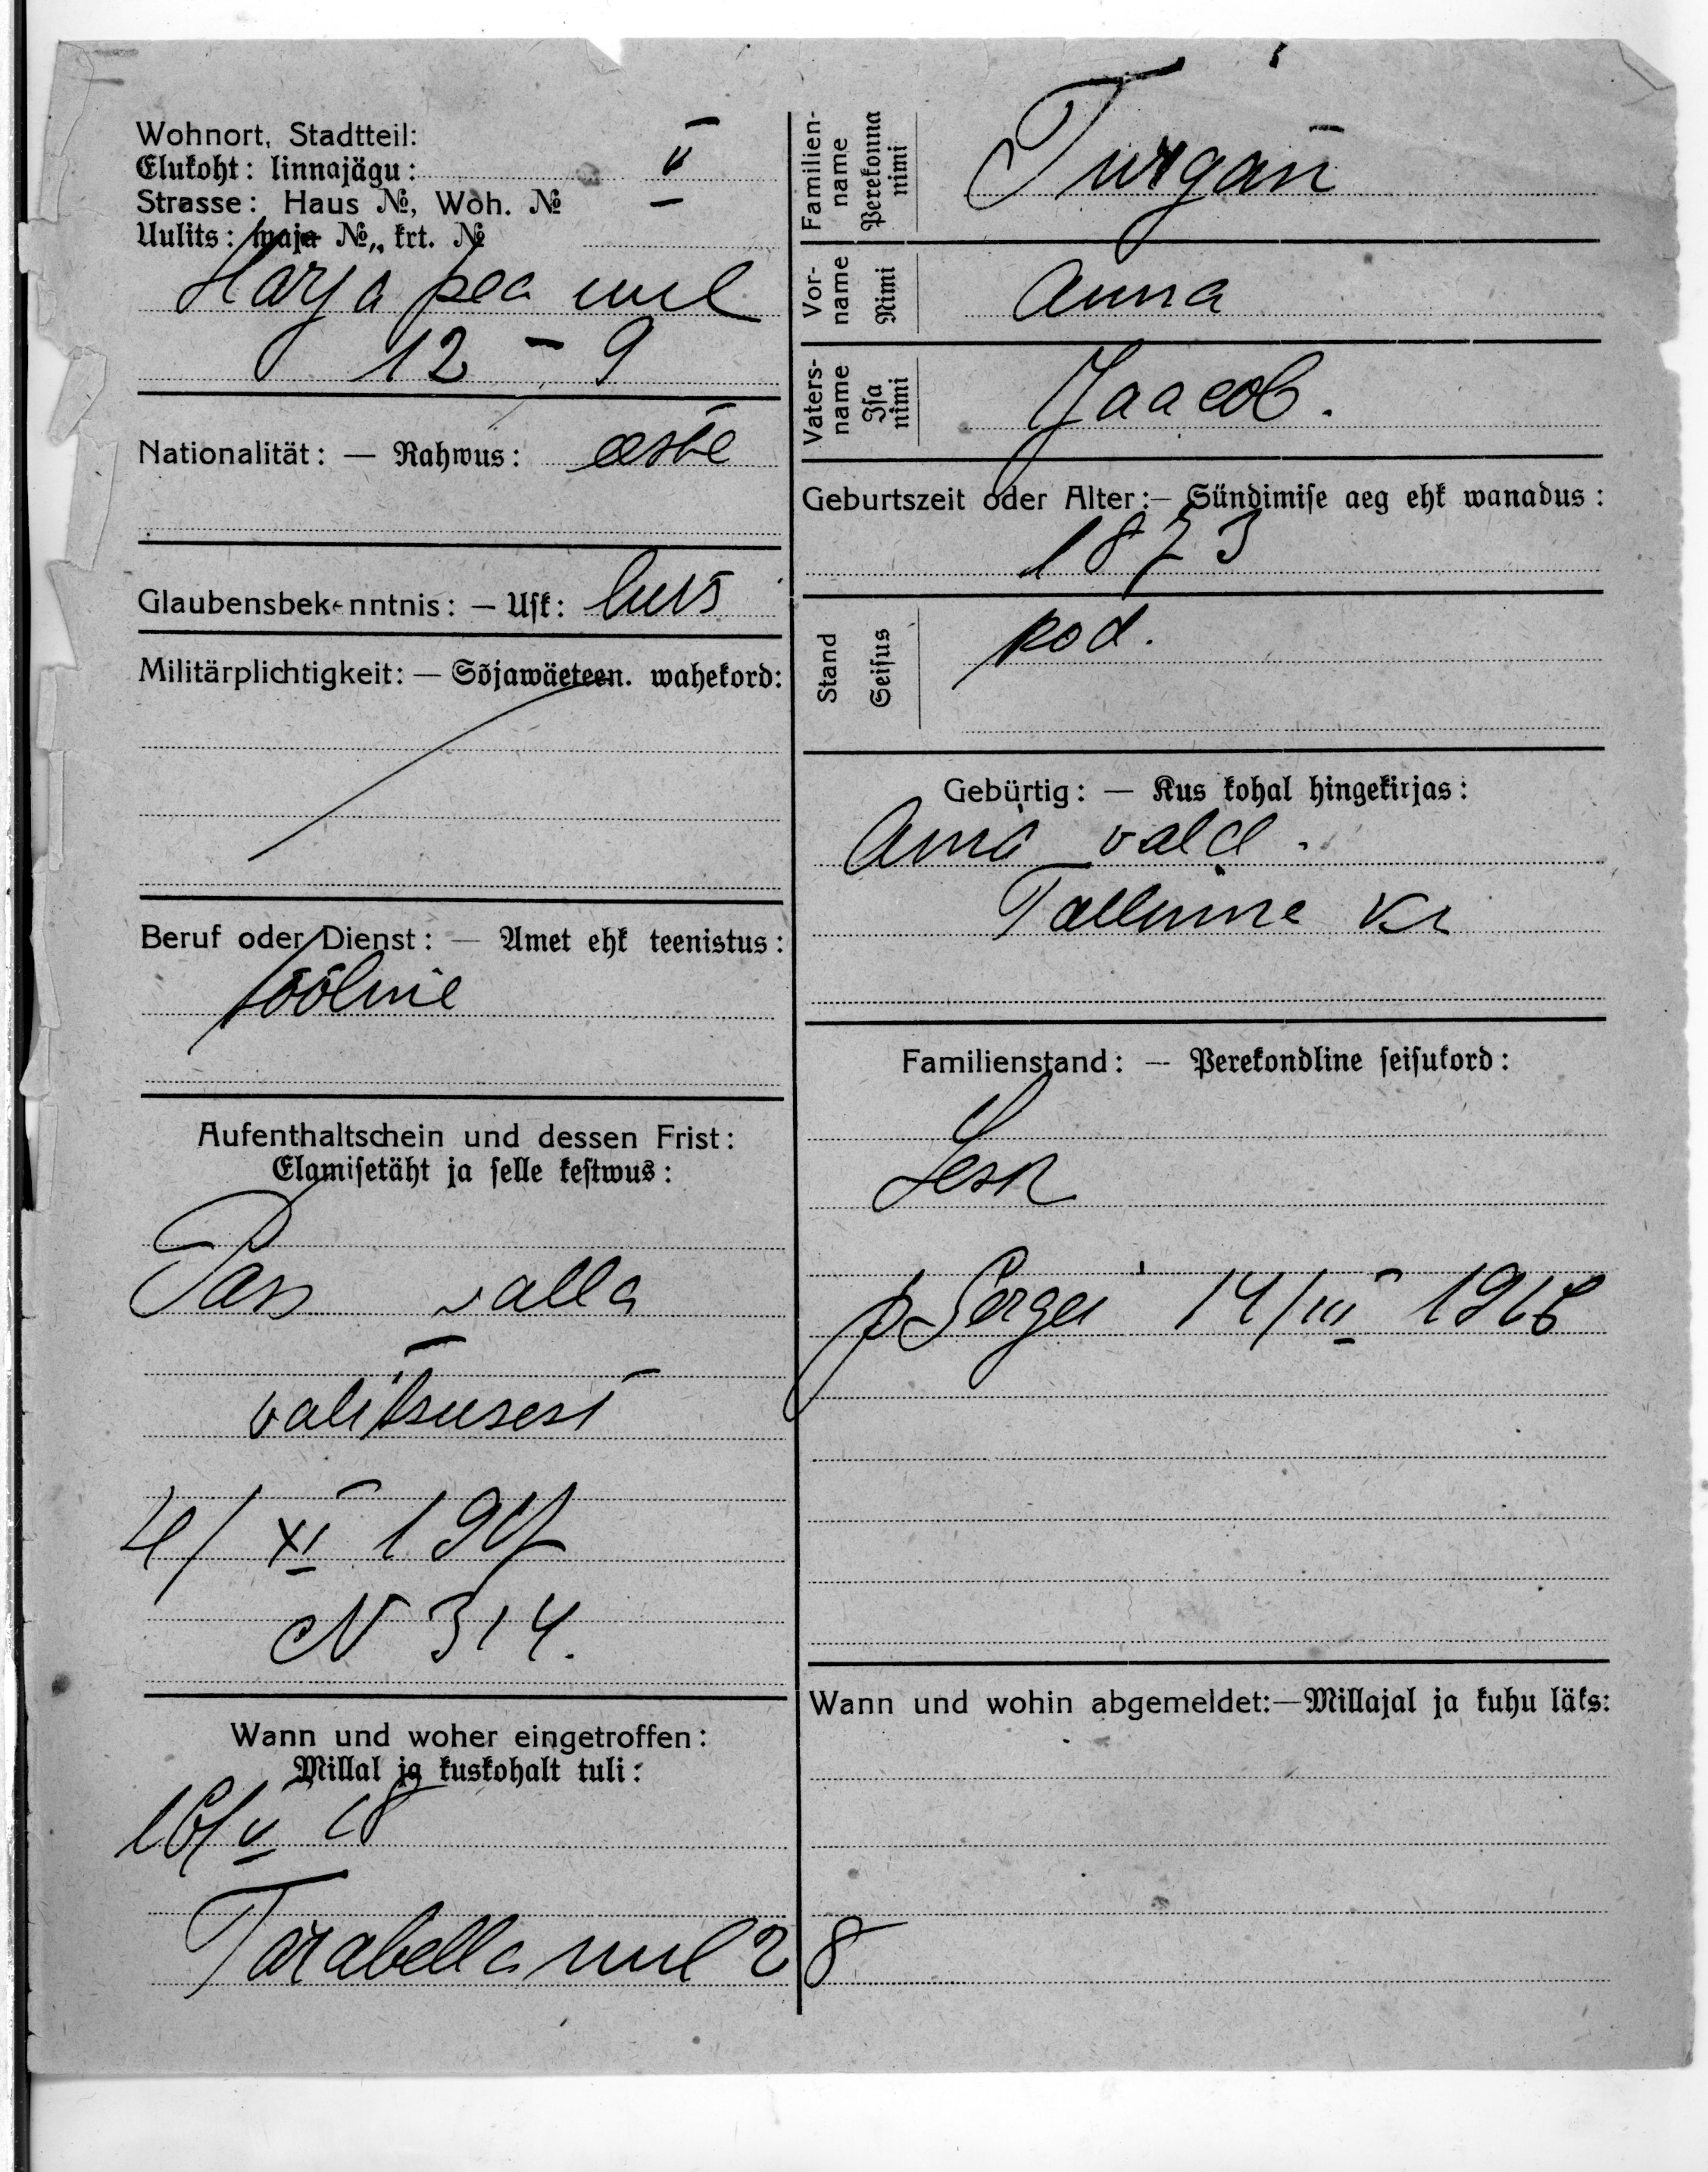 Wohnort, Stadtteil:
Elukoht: linnajägu: V
Strasse: Haus №, Woh. №
Uulits: maja №„ krt. №
Harjapea uul
12 – 9
Nationalität: — Rahwus: eesti
Glaubensbekenntnis: — Usk: luts
Militärplichtigkeit: — Sõjawäeteen. wahekord:
Beruf oder Dienst: — Amet ehk teenistus:
tööline
Aufenthaltschein und dessen Frist:
Elamisetäht ja selle kestwus:
Pass valla
valitsusest
4/XI 1917
N 314.
Wann und woher eingetroffen:
Millal ja kuskohalt tuli:
16/V 18
Tarabella uul 28
Familien-
name
Perekonna
nimi
Turgan
Vor-
name
Nimi
Anna
Vaters-
name
Isa
nimi
Jaacob.
Geburtszeit oder Alter:— Sündimise aeg ehk wanadus:
1873
Stand
Seisus
kod.
Gebürtig: — Kus kohal hingekirjas:
vald.
Tallinna Kr
Familienstand: — Perekondline seisukord:
Lesk
p Sergei 14/III 1918
Wann und wohin abgemeldet:—Millajal ja kuhu läks: